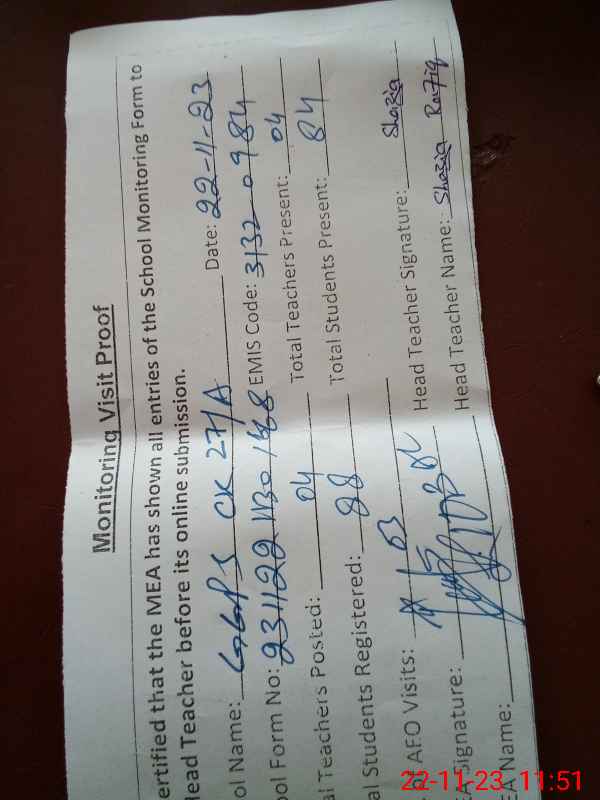 Monitoring Visit Proof
ertified that the MEA has shown all entries of the School Monitoring Form to
Head Teacher before its online submission.
ol Name: CK 27/A Date: 22-11-23
ool Form No: EMIS Code: 31320984
al Teachers Posted: 04 Total Teachers Present: 04
al Students Registered: 88 Total Students Present: 84
of AFO Visits: 03
EA Signature: Head Teacher Signature: Shazia
EA Name: Head Teacher Name: Shazia Rafiq
22-11-23 11:51